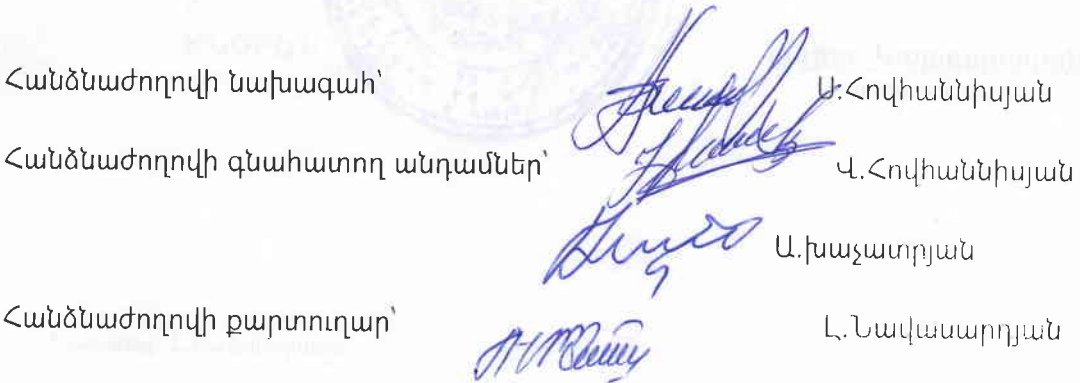 Հանձնաժողովի նախագահ՝ Ս.Հովհաննիսյան
Հանձնաժողովի գնահատող անդամներ՝ Վ.Հովհաննիսյան
Ա.խաչատրյան
Հանձնաժողովի քարտուղար՝ Լ.Նավասարդյան